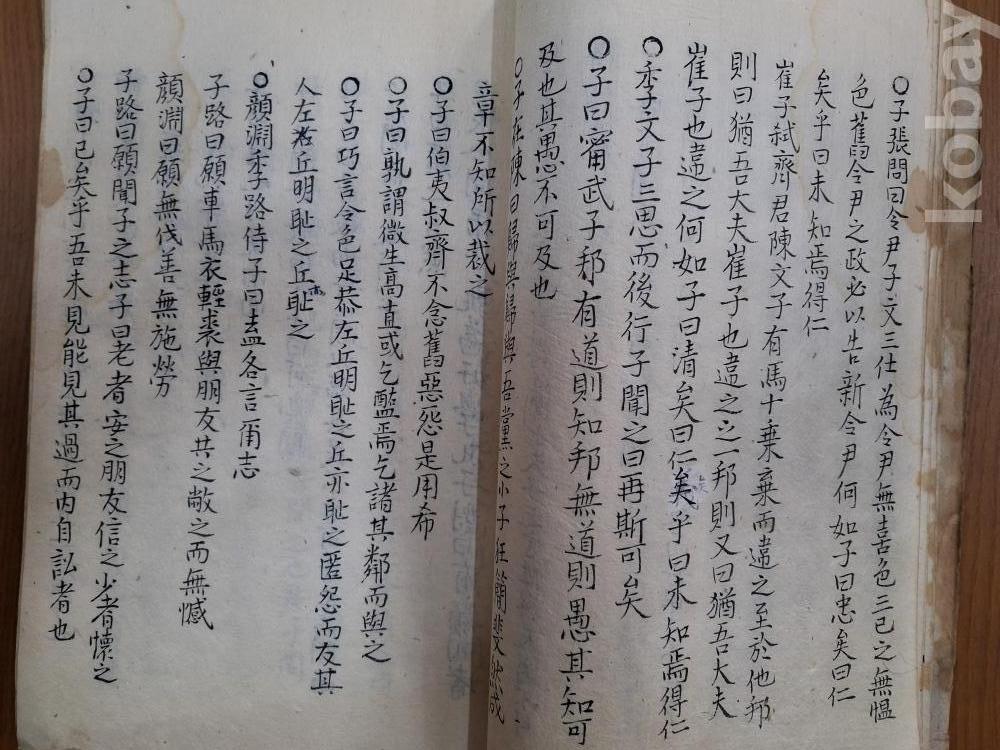 ○子張問曰令尹子文三仕為令尹無喜色三已之無愠
色舊令尹之政必以告新令尹何如子曰忠矣曰仁
矣乎曰未知焉得仁
崔子弑齊君陳文子有馬十乘棄而違之至於他邦
則曰猶吾大夫崔子也違之之一邦則又曰猶吾大夫
崔子也違之何如子曰清矣曰仁矣乎曰未知焉得仁
○季文子三思而後行子聞之曰再斯可矣
○子曰甯武子邦有道則知邦無道則愚其知可
及也其愚不可及也
○子在陳曰歸與歸與吾黨之小子狂簡斐然成
章不知所以裁之
○子曰伯夷叔齊不念舊惡怨是用希
○子曰孰謂微生高直或乞醯焉乞諸其鄰而與之
○子曰巧言令色足恭左丘明恥之丘亦恥之匿怨而友其
人左丘明恥之丘亦恥之
○顏淵季路侍子曰盍各言爾志
子路曰願車馬衣輕裘與朋友共之敝之而無憾
顏淵曰願無伐善無施勞
子路曰願聞子之志子曰老者安之朋友信之少者懷之
○子曰已矣乎吾未見能見其過而內自訟者也
kobay